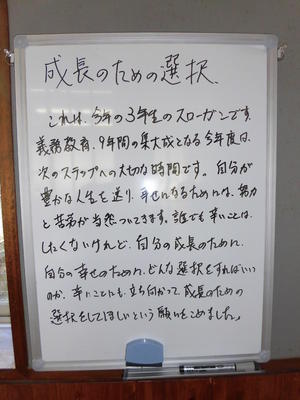 成長のための選択、
これは、今年の3年生のスローガンです。
義務教育、9年間の集大成となる今年度は、
次のステップへの大切な時間です。自分が
豊かな人生を送り、幸せになるためには、努力
と苦労が当然ついてきます。誰でも辛いことは、
したくないけれど、自分の成長のために、
自分の幸せのために、どんな選択をすればいい
のか、辛いことにも、立ち向かって、成長のための
選択をしてほしいという願いをこめました。